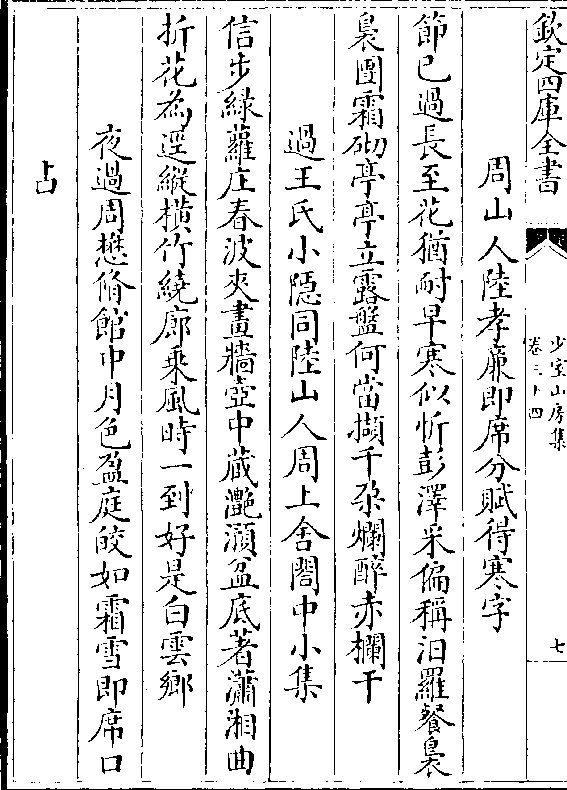 欽定四庫全書
少室山房集
卷三十四
七
周山人陸孝廉即席分賦得寒字
節已過長至花猶耐早寒似忻彭澤采偏稱汨羅餐裊
裊團霜砌亭亭立露盤何當擷千朶爛醉赤欄干
過王氏小隱同陸山人周上舍閣中小集
信步綠蘿庄春波夾畫牆壺中藏灔澦盆底著瀟湘曲
折花為逕縱橫竹繞廊乗風時一到好是白雲鄉
夜過周懋脩館中月色盈庭皎如霜雪即席口
占